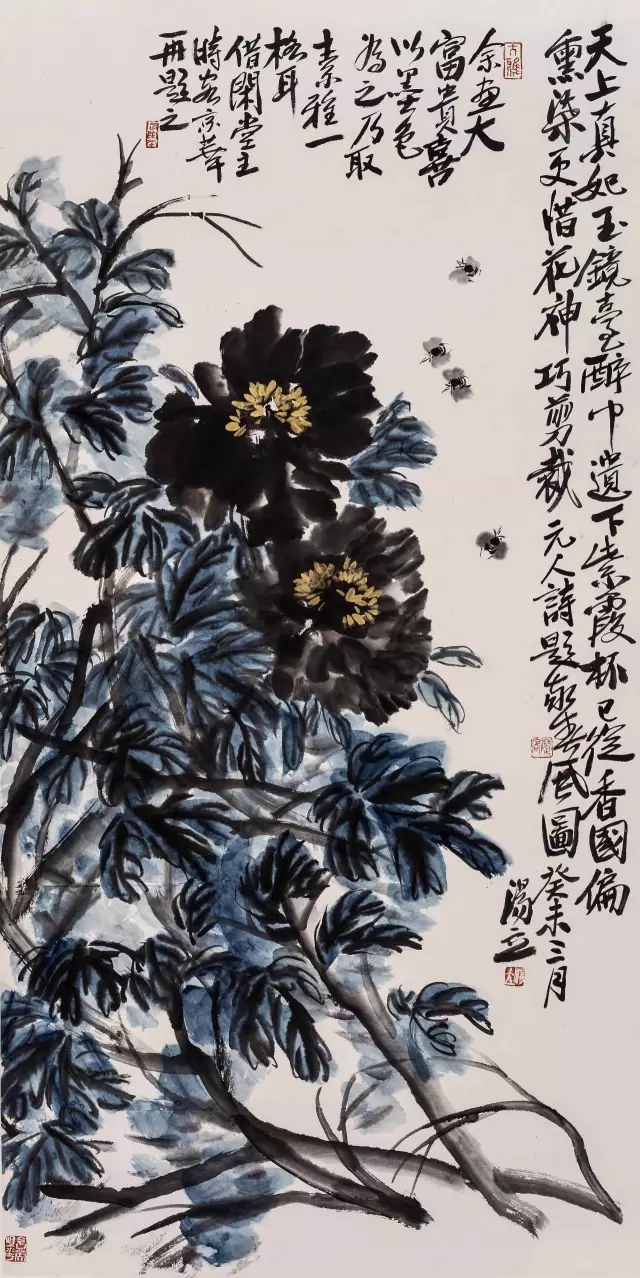 天上真妃玉鏡臺醉中遺下紫霞杯已從香國偏
熏染更惜花神巧剪裁元人詩題春風圖癸未三月
湯立
余畫大
富貴喜
以墨色
為之乃取
素雅一
格耳
借閑堂主
時客京華
再題之